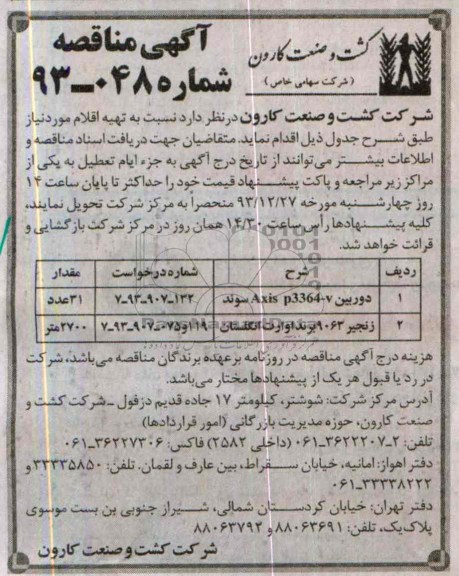 کشت و صنعت کارون
(شرکت سهامی خاص)
آگهی مناقصه
شماره ۰۴۸-۹۳
شرکت کشت و صنعت کارون درنظر دارد نسبت به تهیه اقلام موردنیاز
طبق شرح جدول ذیل اقدام نماید. متقاضیان جهت دریافت اسناد مناقصه و
اطلاعات بیشتر می‌توانند از تاریخ درج آگهی به جزء ایام تعطیل به یکی از
مراکز زیر مراجعه و پاکت پیشنهاد قیمت خود را حداکثر تا پایان ساعت ۱۴
روز چهارشنبه مورخه ۹۳/۱۲/۲۷ منحصراً به مرکز شرکت تحویل نمایند،
کلیه پیشنهادها رأس ساعت ۱۴/۳۰ همان روز در مرکز شرکت بازگشایی و
قرائت خواهد شد.
ردیف شرح شماره درخواست مقدار
۱ دوربین Axis p3364-v سوئد ۷-۹۳-۹۰۷-۱۳۲ ۳۱عدد
۲ زنجیر ۹۰۶۳ برند اوارت انگلستان ۷-۹۳-۹۰۷-۰۷۵و۱۱۹ ۲۷۰۰متر
هزینه درج آگهی مناقصه در روزنامه برعهده برندگان مناقصه می‌باشد، شرکت
در رد یا قبول هر یک از پیشنهادها مختار می‌باشد.
آدرس مرکز شرکت: شوشتر، کیلومتر ۱۷ جاده قدیم دزفول -شرکت کشت و
صنعت کارون، حوزه مدیریت بازرگانی (امور قراردادها)
تلفن: ۲-۳۶۲۲۲۰۷-۰۶۱ (داخلی ۲۵۸۲) فاکس: ۳۶۲۲۷۳۰۶-۰۶۱
دفتر اهواز: امانیه، خیابان سقراط، بین عارف و لقمان. تلفن: ۳۳۳۳۵۸۵۰ و
۳۳۳۳۸۲۲۲-۰۶۱
دفتر تهران: خیابان کردستان شمالی، شیراز جنوبی بن بست موسوی
پلاک یک، تلفن: ۸۸۰۶۳۶۹۱ و ۸۸۰۶۳۷۹۲
شرکت کشت و صنعت کارون